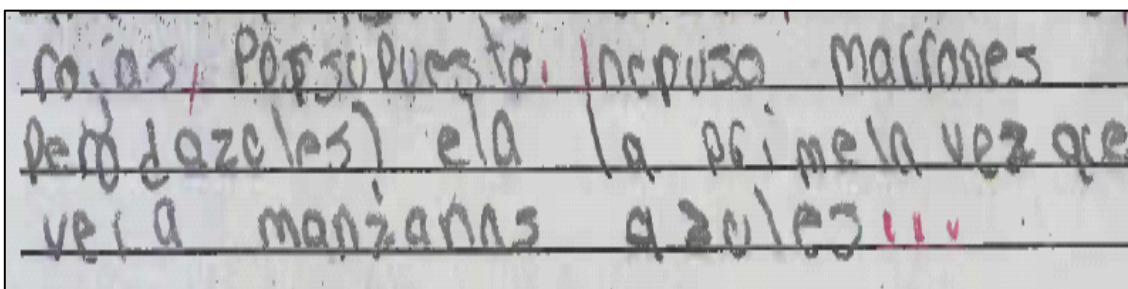 roias, Porsupuesto. Incpuso marrones
pero ¿azules? ela la primela vez que
veia manzanas azules...